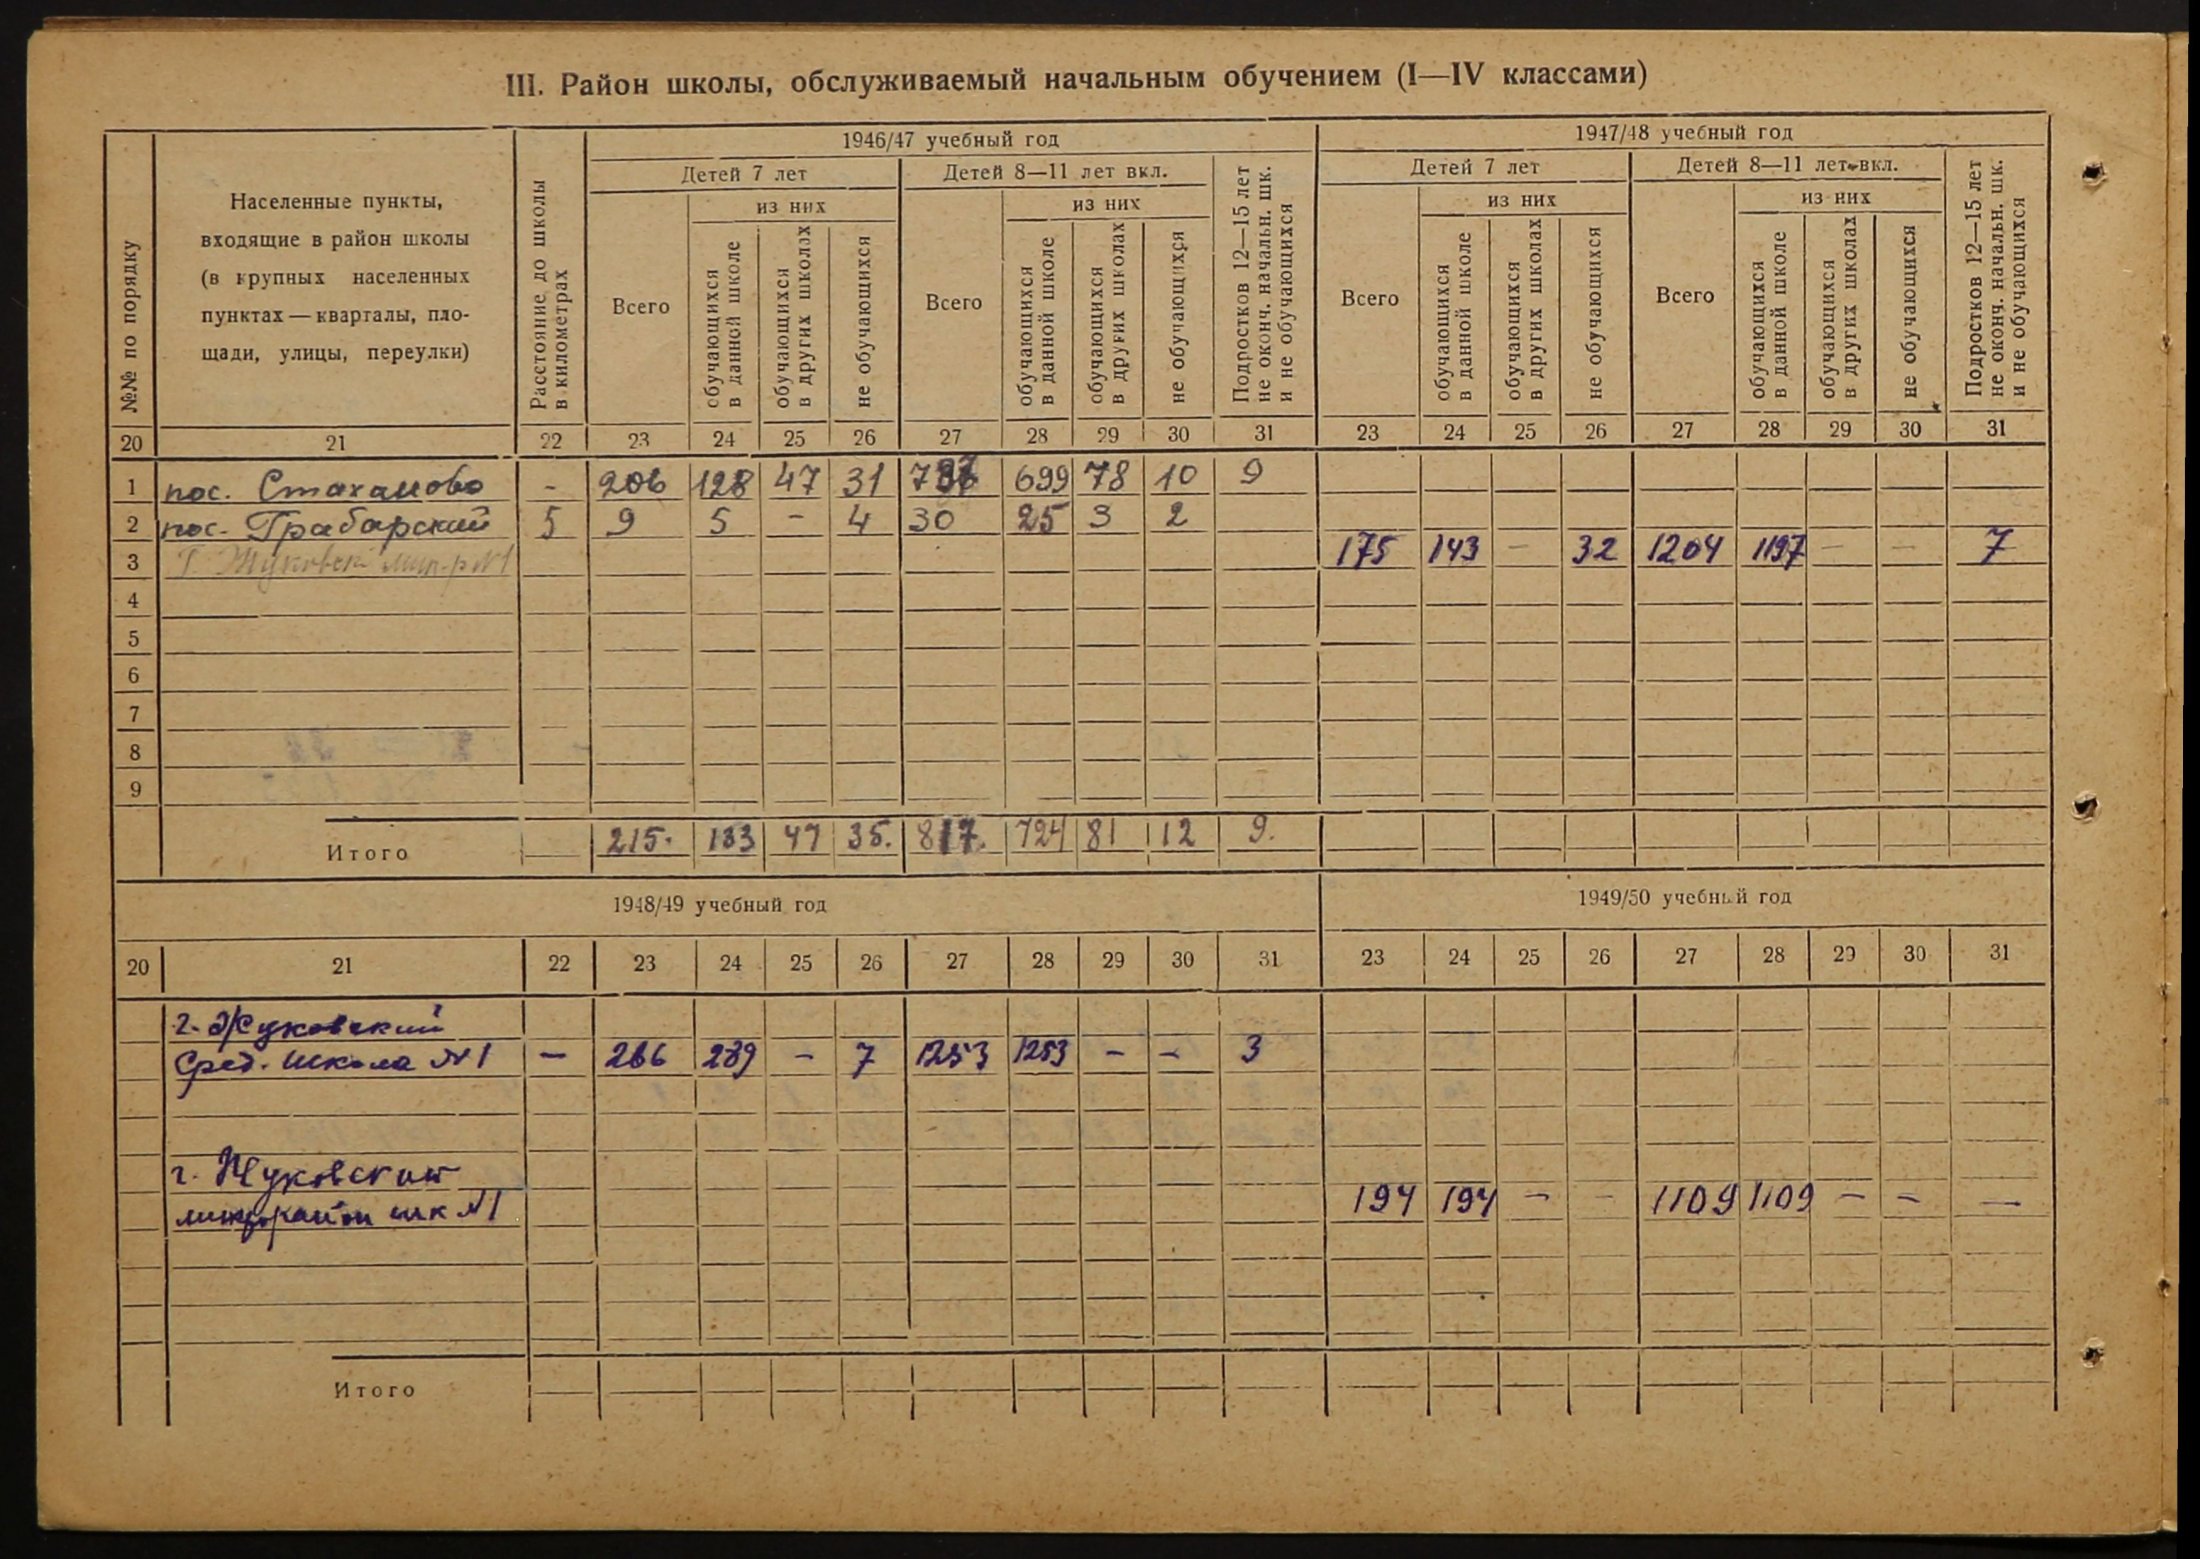 III. Район школы, обслуживаемый начальным обучением (I—IV классами)
№№ по порядку
Населенные пункты,
входящие в район школы
(в крупных населенных
пунктах — кварталы, пло-
щади, улицы, переулки)
Расстояние до школы
в километрах
1946/47 учебный год
Детей 7 лет
Всего
из них
обучающихся
в данной школе
обучающихся
в других школах
не обучающихся
Детей 8—11 лет вкл.
Всего
из них
обучающихся
в данной школе
обучающихся
в других школах
не обучающихся
Подростков 12—15 лет
не оконч. начальн. шк.
и не обучающихся
1947/48 учебный год
Детей 7 лет
Всего
из них
обучающихся
в данной школе
обучающихся
в других школах
не обучающихся
Детей 8—11 лет вкл.
Всего
из них
обучающихся
в данной школе
обучающихся
в других школах
не обучающихся
Подростков 12—15 лет
не оконч. начальн. шк.
и не обучающихся
20 21 22 23 24 25 26 27 28 29 30 31 23 24 25 26 27 28 29 30 31
1 пос. Стаханово - 206 128 47 31 787 699 78 10 9
2 пос. Грабарский 5 9 5 - 4 30 25 3 2
3 Г. Жуковский мик-р N1 175 143 - 32 1204 1197 - - 7
4
5
6
7
8
9
Итого 215. 133 47 35. 817. 724 81 12 9.
1948/49 учебный год 1949/50 учебный год
20 21 22 23 24 25 26 27 28 29 30 31 23 24 25 26 27 28 29 30 31
г. Жуковский
Сред. школа N1 - 266 239 - 7 1253 1253 - - 3
г. Жуковский
микрорайон шк N1 194 194 - - 1109 1109 - - -
Итого